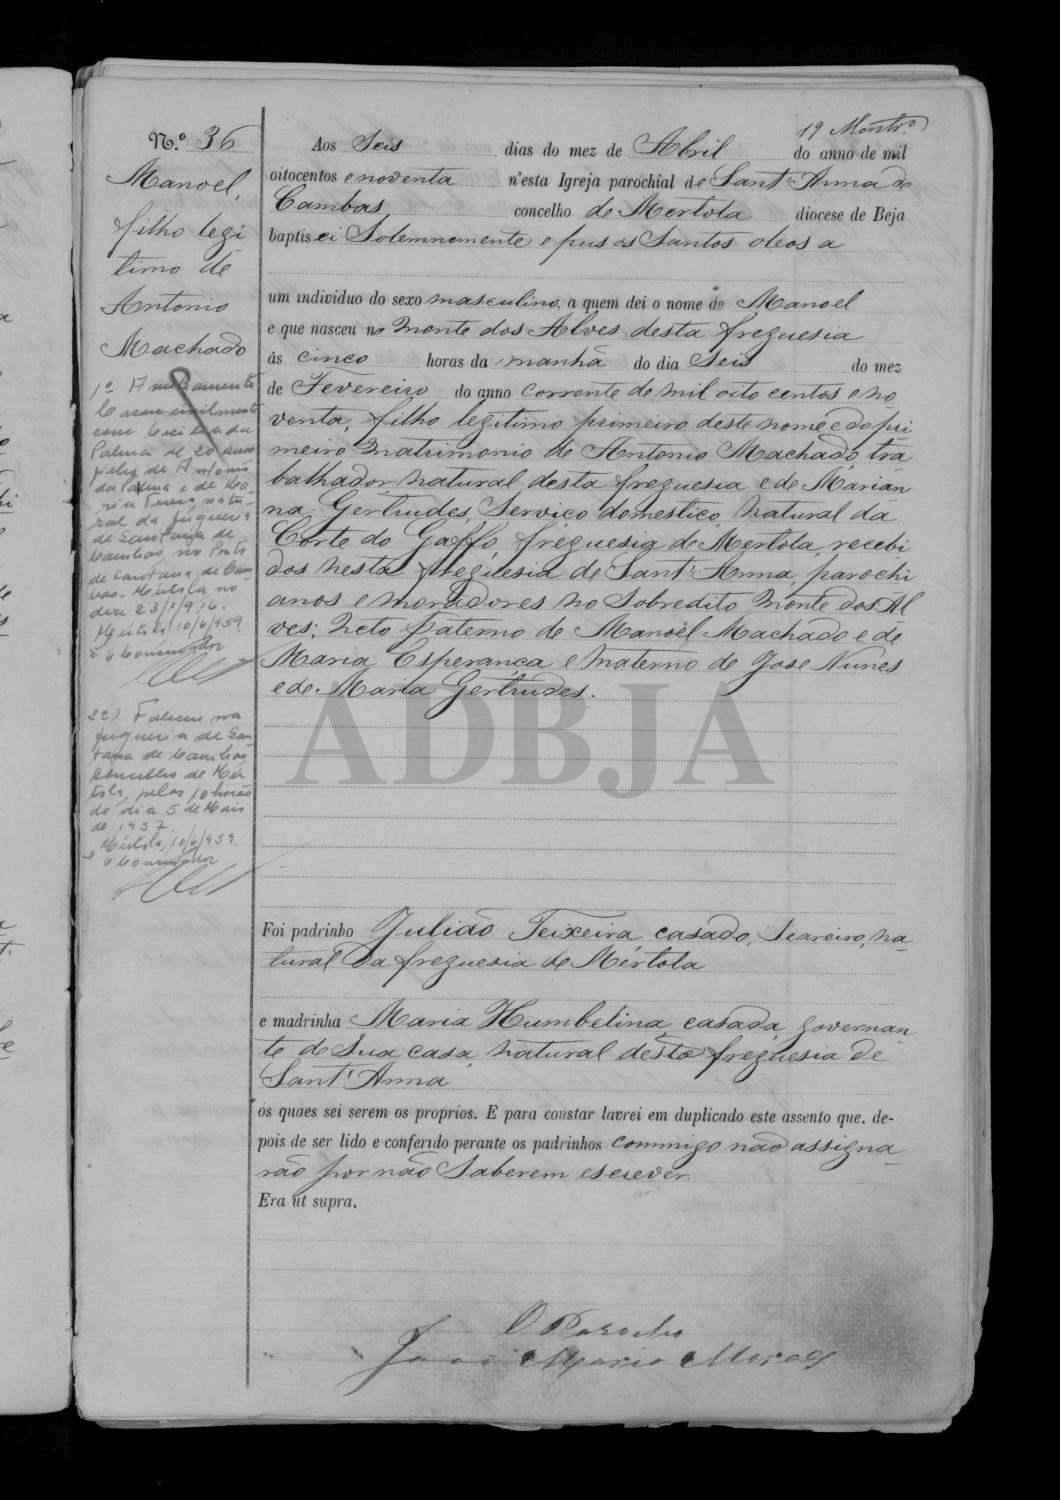 19
N.º 36
Manoel,
filho legi
timo de
Antonio
Machado
1º
casou civilmente
com
Palma de 20 anos
filha de Antonio
da Palma e de Ma
ria natu-
ral da freguesia
de Santana de
Cambas, no Posto
de Santana de Cam
bas - Mértola, no
dia 23/1/916.
Mértola, 10/6/959.
O Conservador
2º) Faleceu na
freguesia de San
tana de Cambas
concelho de Mér
tola, pelas 10 horas
do dia 5 de Maio
de 1957.
Mértola, 10/6/959.
O Conservador
Aos Seis dias do mez de Abril do anno de mil
oitocentos e noventa n'esta Igreja parochial de Sant'Anna de
Cambas concelho de Mertola diocese de Beja
baptisei Solemnemente e pus os Santos oleos a
um individuo do sexo masculino, a quem dei o nome de Manoel
e que nasceu no Monte dos Alves desta freguesia
ás cinco horas da manhã do dia Seis do mez
de Fevereiro do anno corrente de mil oito centos e no
venta, filho legitimo primeiro deste nome e do pri
meiro Matrimonio de Antonio Machado, tra
balhador, natural desta freguesia e de Marian
na Gertrudes, Serviço domestico, natural da
Corte do Gaffo, freguesia de Mertola, recebi
dos nesta freguesia de Sant'Anna, parochi
anos e moradores no Sobredito Monte dos Al
ves; Neto paterno de Manoel Machado e de
Maria Esperança e materno de Jose Nunes
e de Maria Gertrudes.
ADBJA
Foi padrinho Julião Teixeira, casado, Seareiro, na-
tural da freguesia de Mertola
e madrinha Maria Humbelina, casada, governan-
te de Sua casa, natural desta freguesia de
Sant'Anna
os quaes sei serem os proprios. E para constar lavrei em duplicado este assento que, de-
pois de ser lido e conferido perante os padrinhos commigo não assigna-
rão por não Saberem escrever.
Era ut supra.
O Parocho
Maria